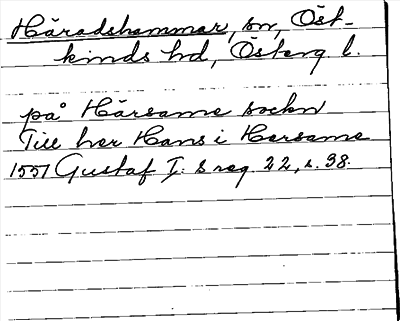 Häradshammar, sn, Öst-
kinds hd, Österg. l.
på Härsame sockn
Till her Hans i Hersame
1551 Gustaf I:s reg. 22, s. 98.